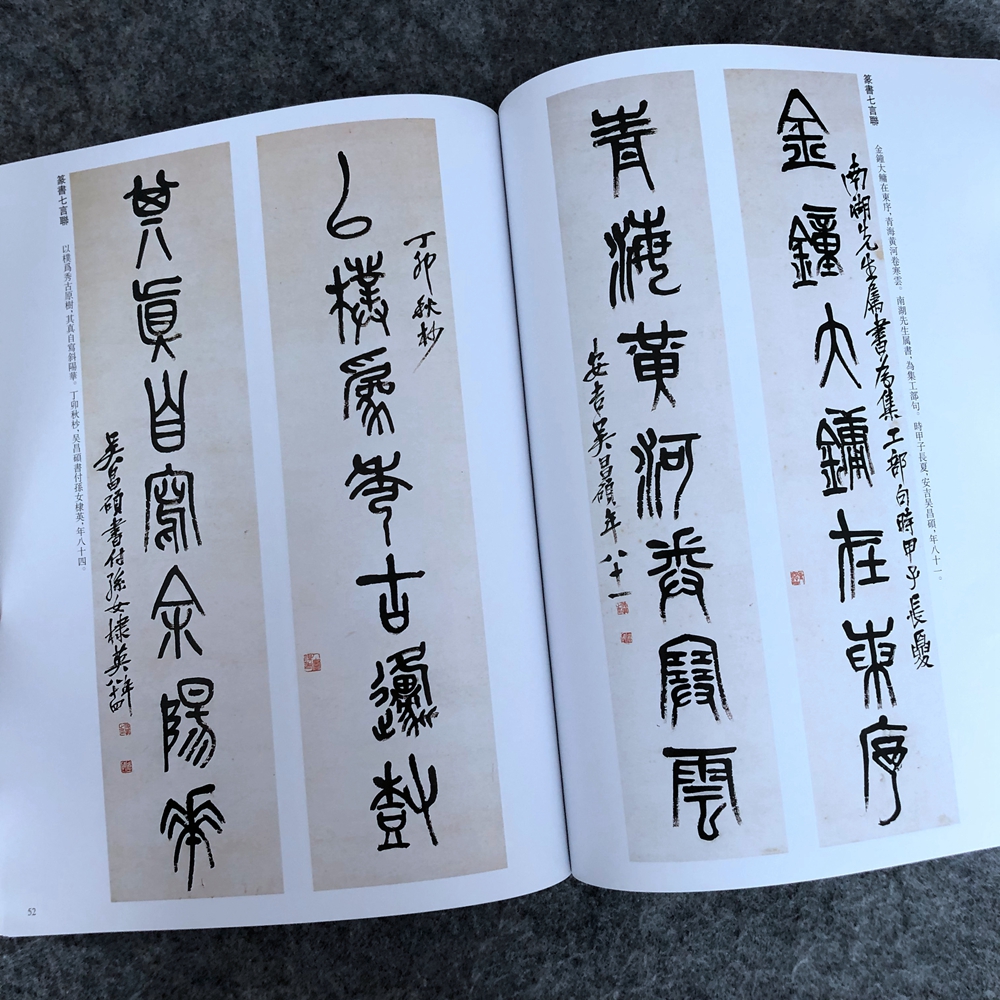 篆書七言聯
金鐘大鏞在東序，青海黃河卷寒雲。 南湖先生属書，為集工部句。時甲子長夏，安吉吴昌碩，年八十一。
金鐘大鏞在東序
南湖先生属書為集工部句時甲子長夏
青海黃河卷寒雲
安吉吴昌碩年八十一
以樸爲秀古原樹
丁卯秋杪
其真自寫余陽華
吴昌碩書付孫女棣英年八十四
篆書七言聯
以樸爲秀古原樹，其真自寫斜陽華。丁卯秋杪，吴昌碩書付孫女棣英，年八十四。
52